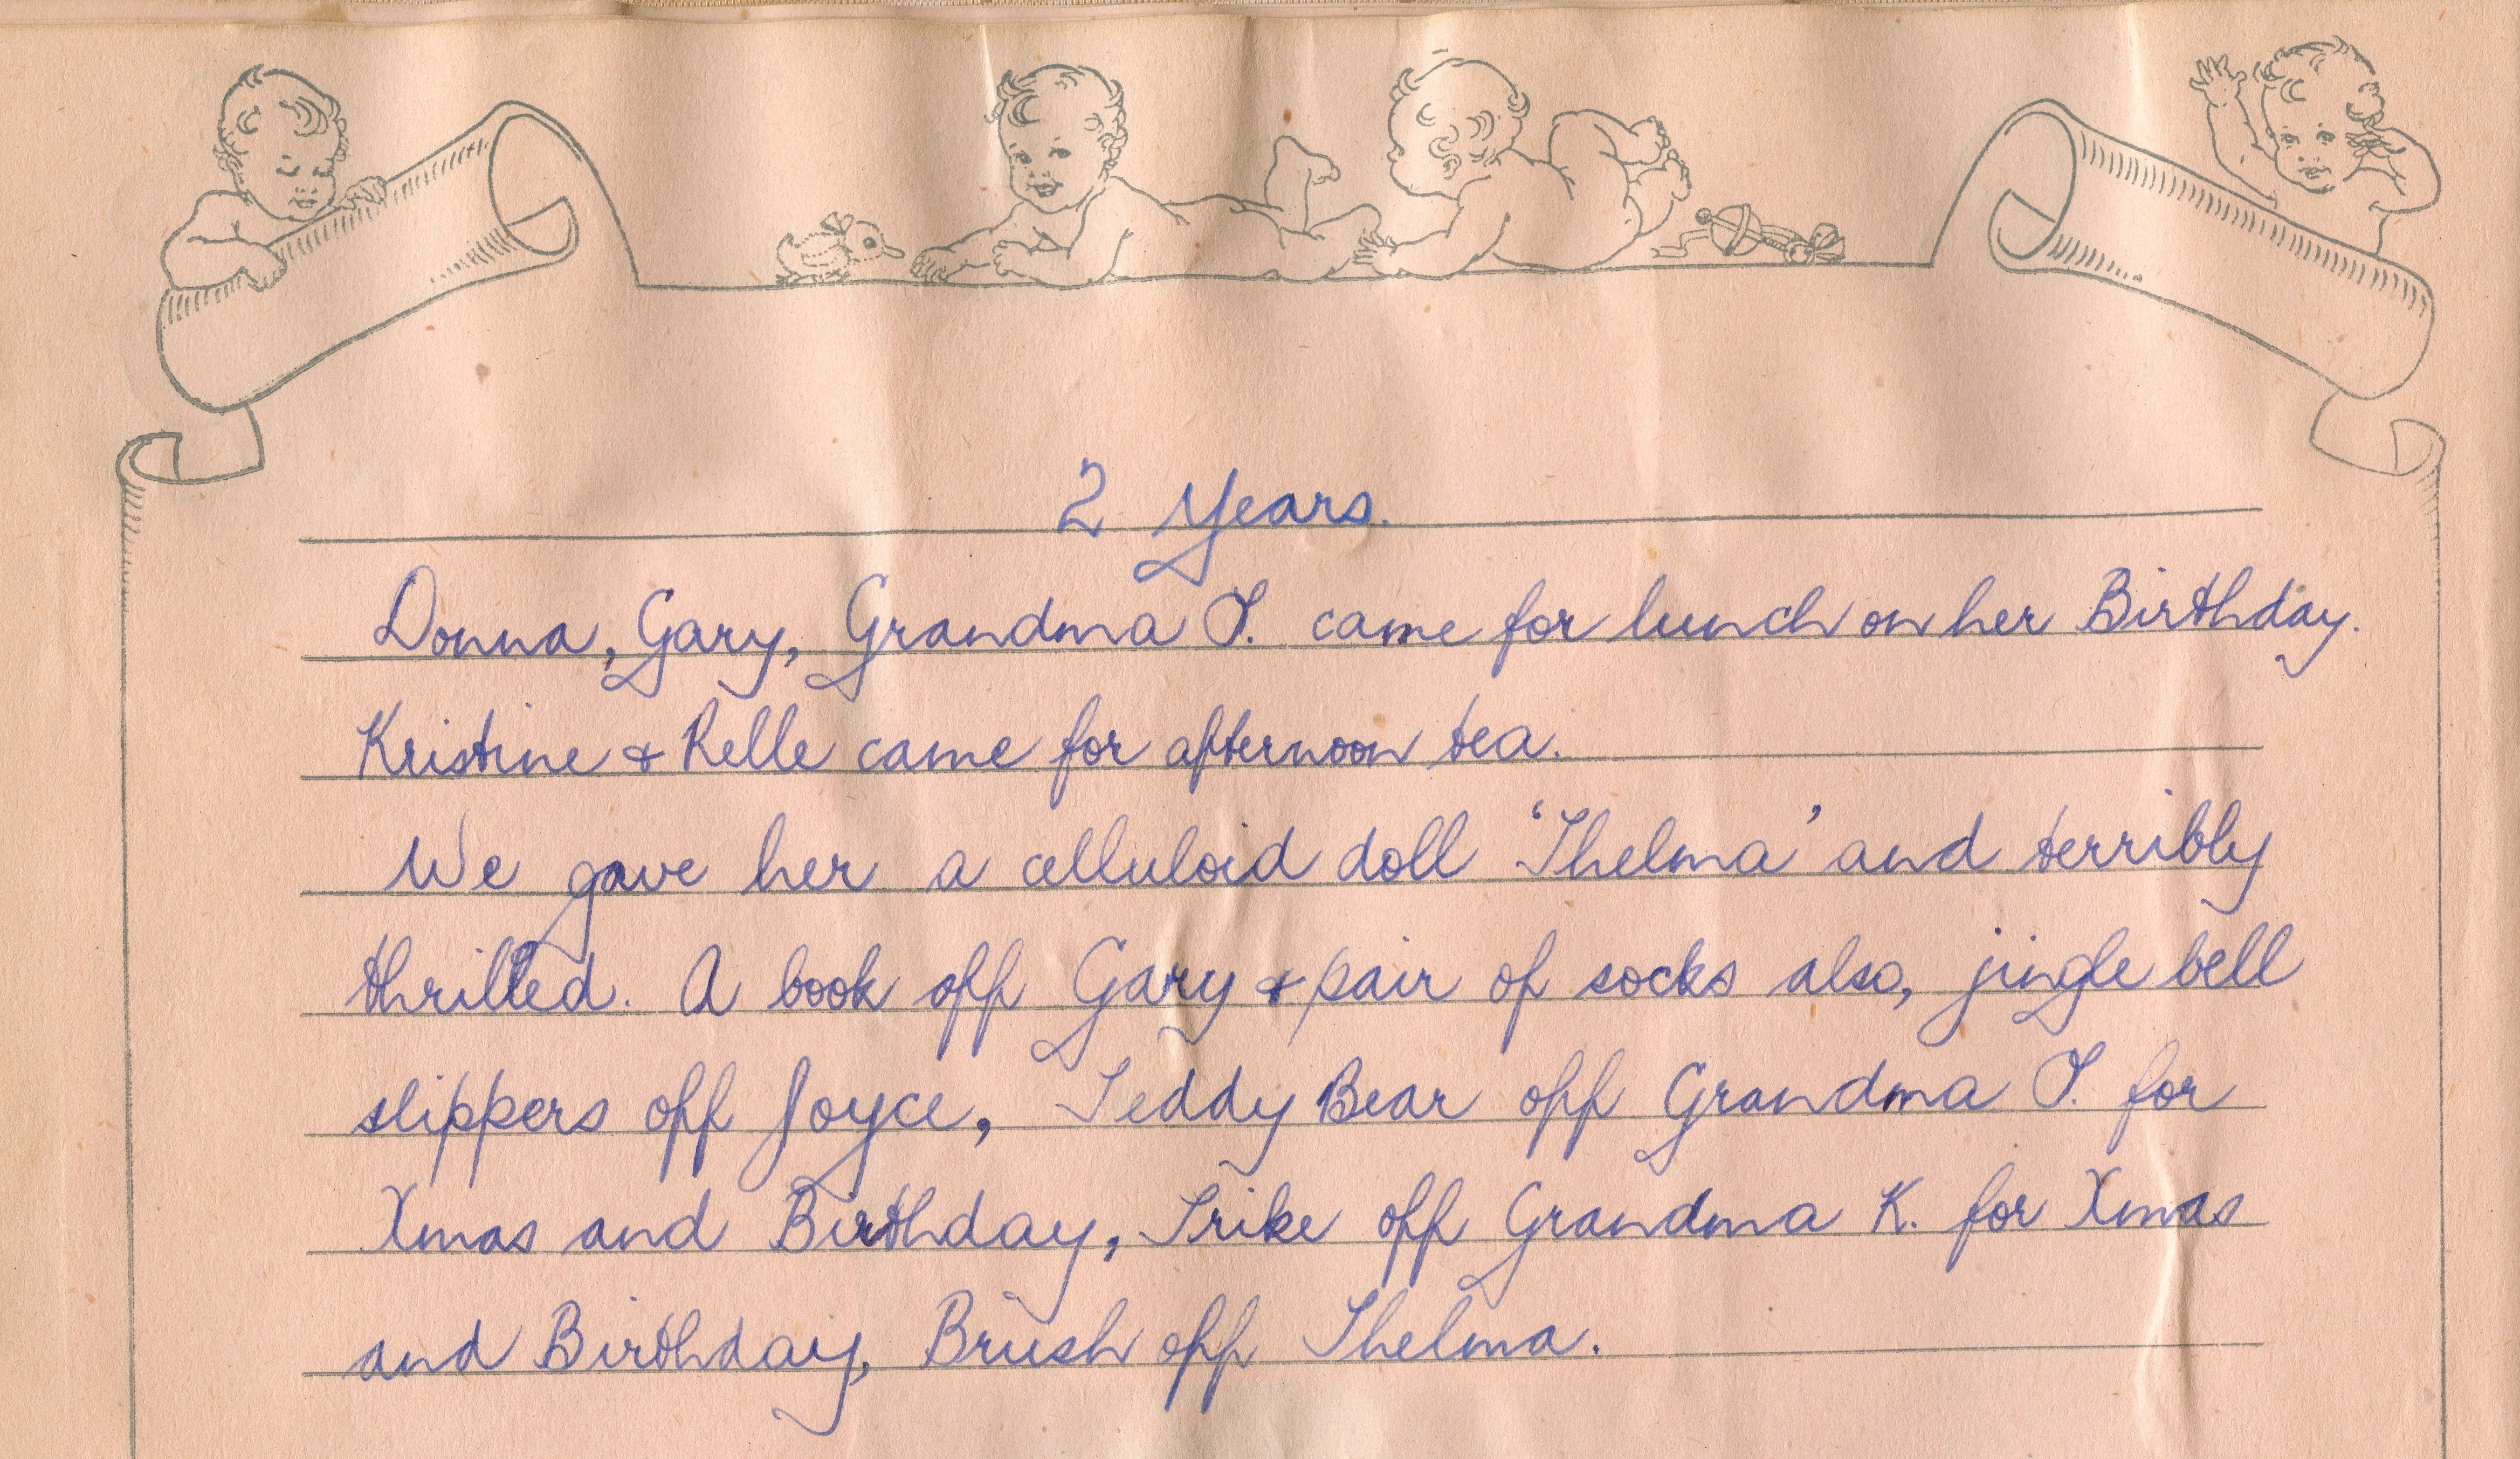 2 Years.
Donna, Gary, Grandma J. came for lunch on her Birthday.
Kristine & Relle came for afternoon tea.
We gave her a celluloid doll 'Thelma' and terribly
thrilled. A book off Gary & pair of socks also, jingle bell
slippers off Joyce, Teddy Bear off Grandma J. for
Xmas and Birthday, Trike off Grandma K. for Xmas
and Birthday, Brush off Thelma.